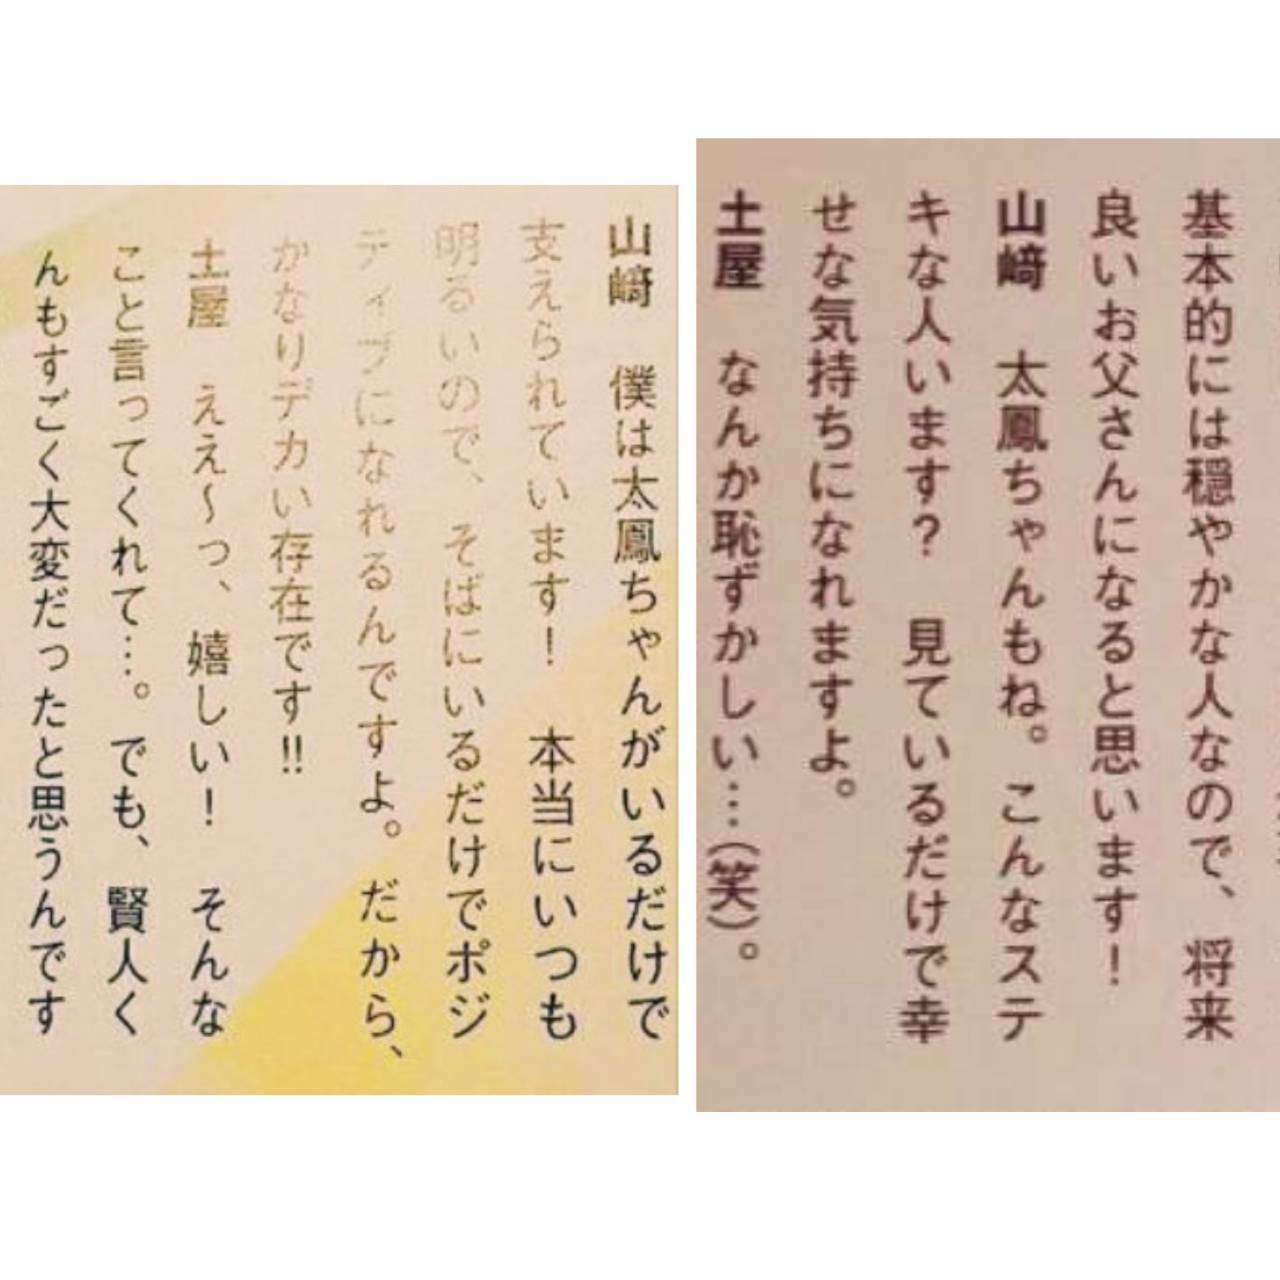 基本的には穏やかな人なので、将来
良いお父さんになると思います！
山﨑　太鳳ちゃんもね。こんなステ
キな人います？　見ているだけで幸
せな気持ちになれますよ。
土屋　なんか恥ずかしい…（笑）。
山﨑　僕は太鳳ちゃんがいるだけで
支えられています！　本当にいつも
明るいので、そばにいるだけでポジ
ティブになれるんですよ。だから、
かなりデカい存在です!!
土屋　ええ〜っ、嬉しい！　そんな
こと言ってくれて…。でも、賢人く
んもすごく大変だったと思うんです